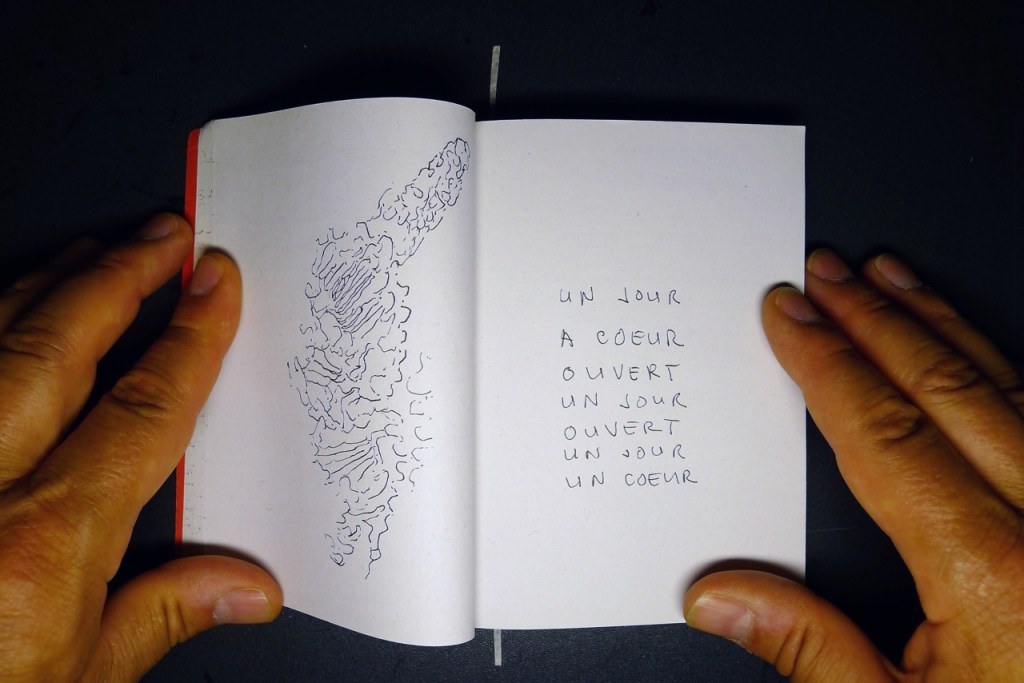 UN JOUR
A COEUR
OUVERT
UN JOUR
OUVERT
UN JOUR
UN COEUR